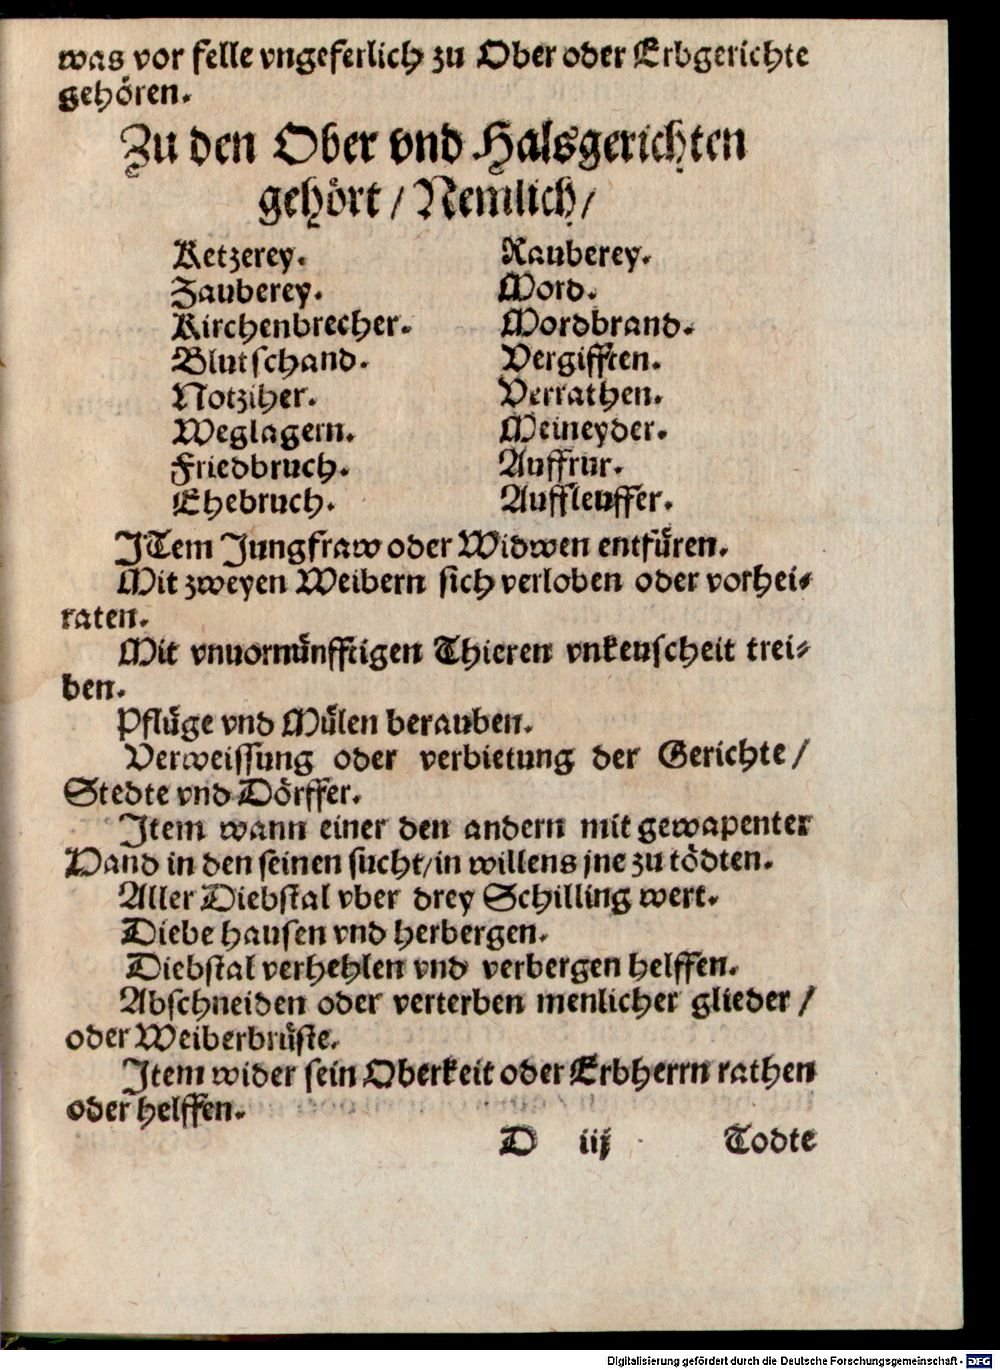 was vor felle vngeferlich zu Ober oder Erbgerichte
gehören.
Zu den Ober vnd Halsgerichten
gehört / Nemlich /
Ketzerey.
Zauberey.
Kirchenbrecher.
Blutschand.
Notziher.
Weglagern.
Friedbruch.
Ehebruch.
Rauberey.
Mord.
Mordbrand.
Vergifften.
Verrathen.
Meineyder.
Auffrur.
Auffleuffer.
JTem Jungfraw oder Widwen entfüren.
Mit zweyen Weibern sich verloben oder vorhei-
raten.
Mit vnuornünfftigen Thieren vnkeuscheit trei-
ben.
Pflüge vnd Mülen berauben.
Verweissung oder verbietung der Gerichte /
Stedte vnd Dörffer.
Jtem wann einer den andern mit gewapenter
Hand in den seinen sucht/in willens jne zu tödten.
Aller Diebstal vber drey Schilling wert.
Diebe hausen vnd herbergen.
Diebstal verhehlen vnd verbergen helffen.
Abschneiden oder verterben menlicher glieder /
oder Weiberbrüste.
Jtem wider sein Oberkeit oder Erbherrn rathen
oder helffen.
D iij Todte
Digitalisierung gefördert durch die Deutsche Forschungsgemeinschaft - DFG